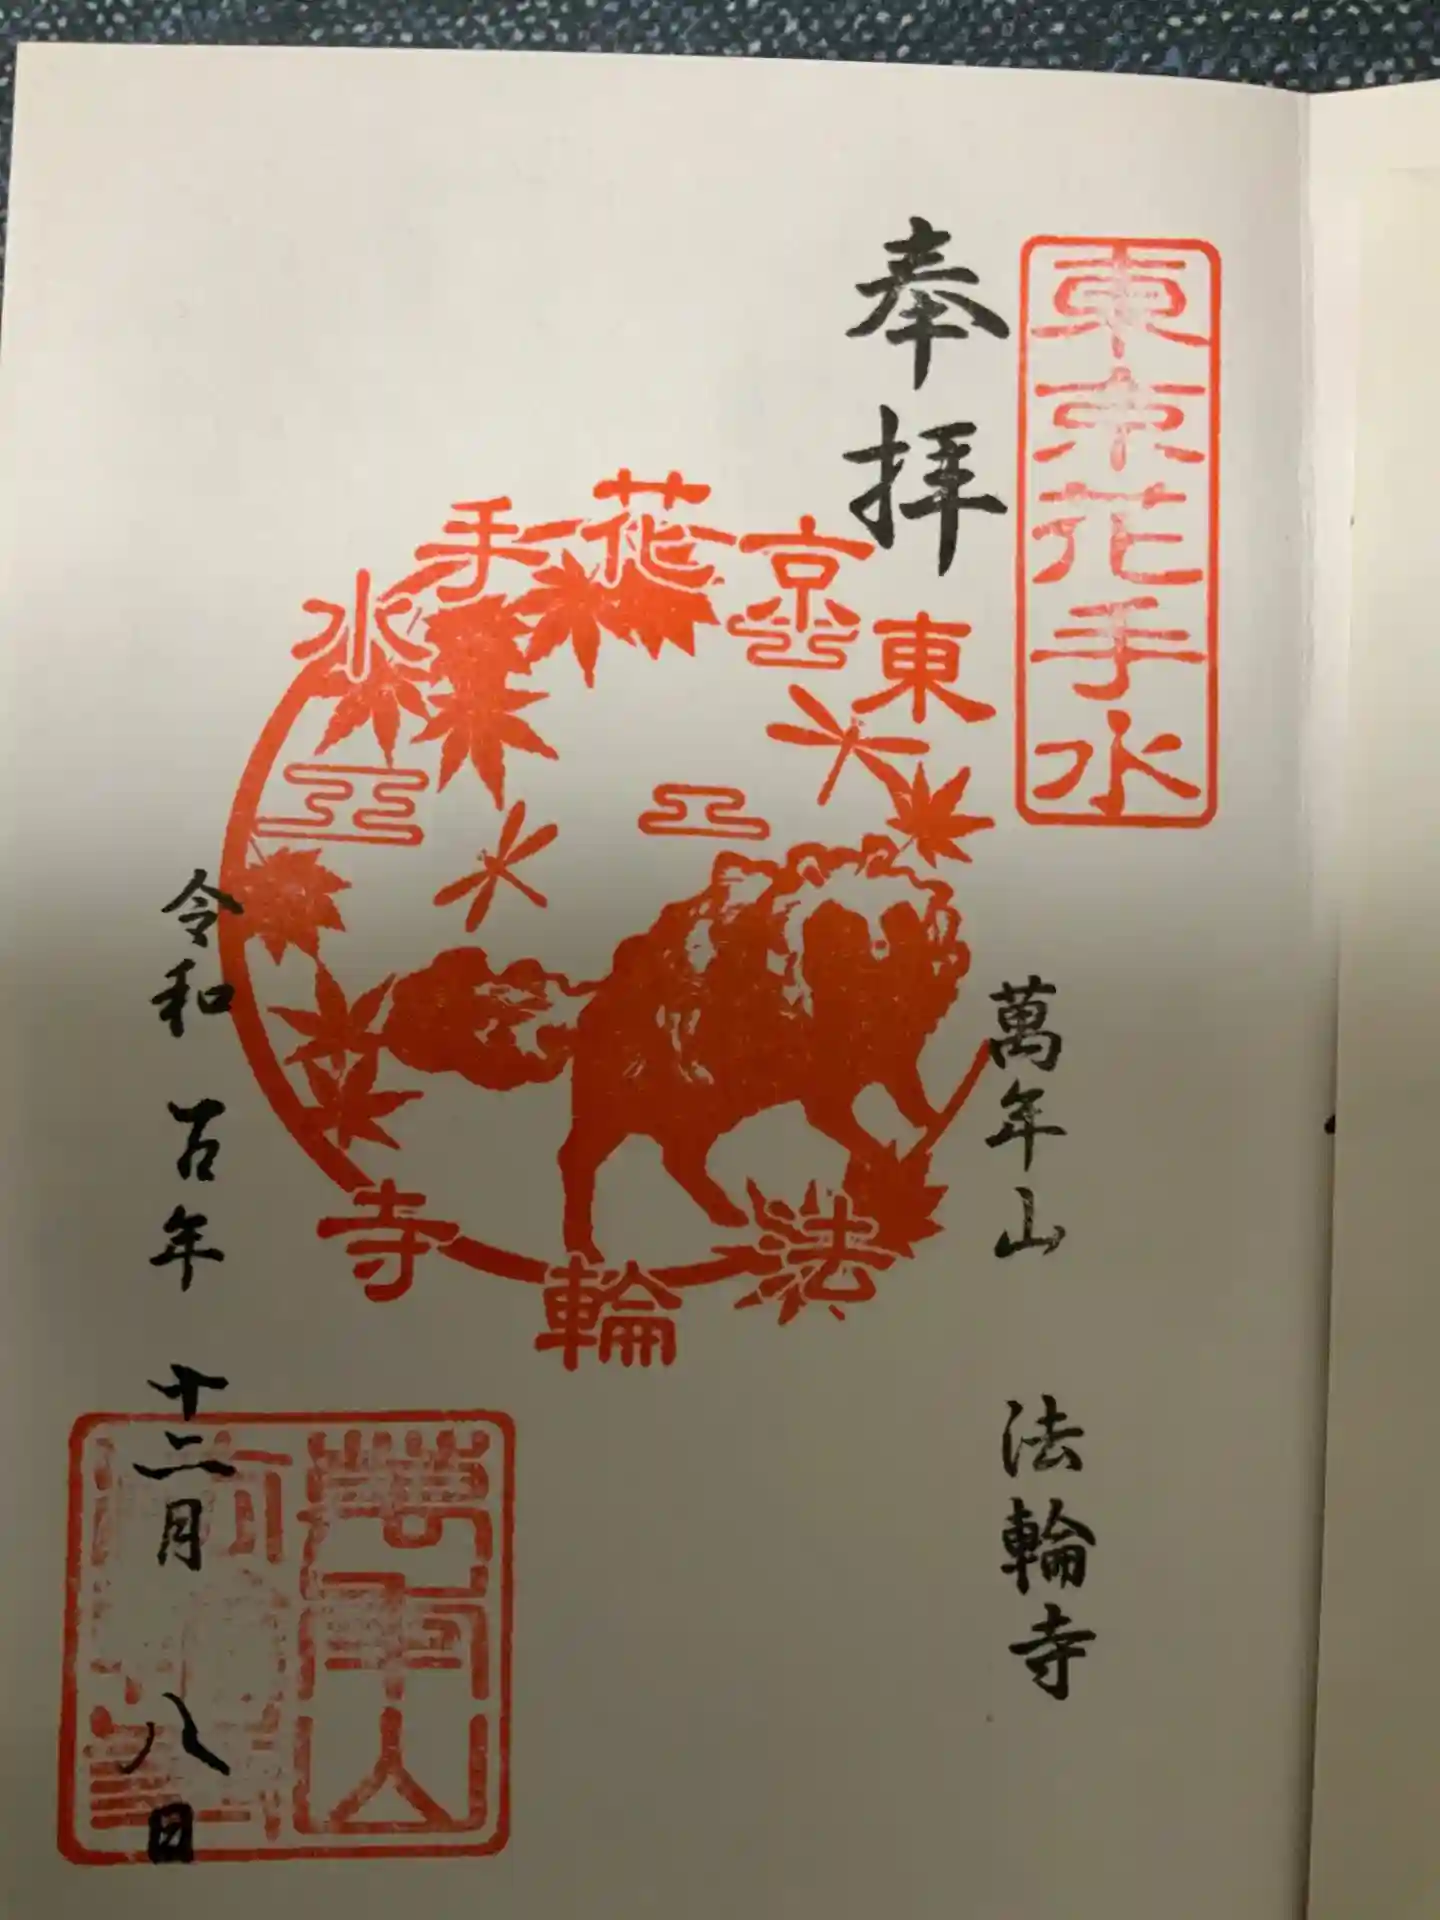 東京花手水
奉拝
萬年山 法輪寺
東京花手水
法輪寺
萬年山
令和 五年 十二月 八日